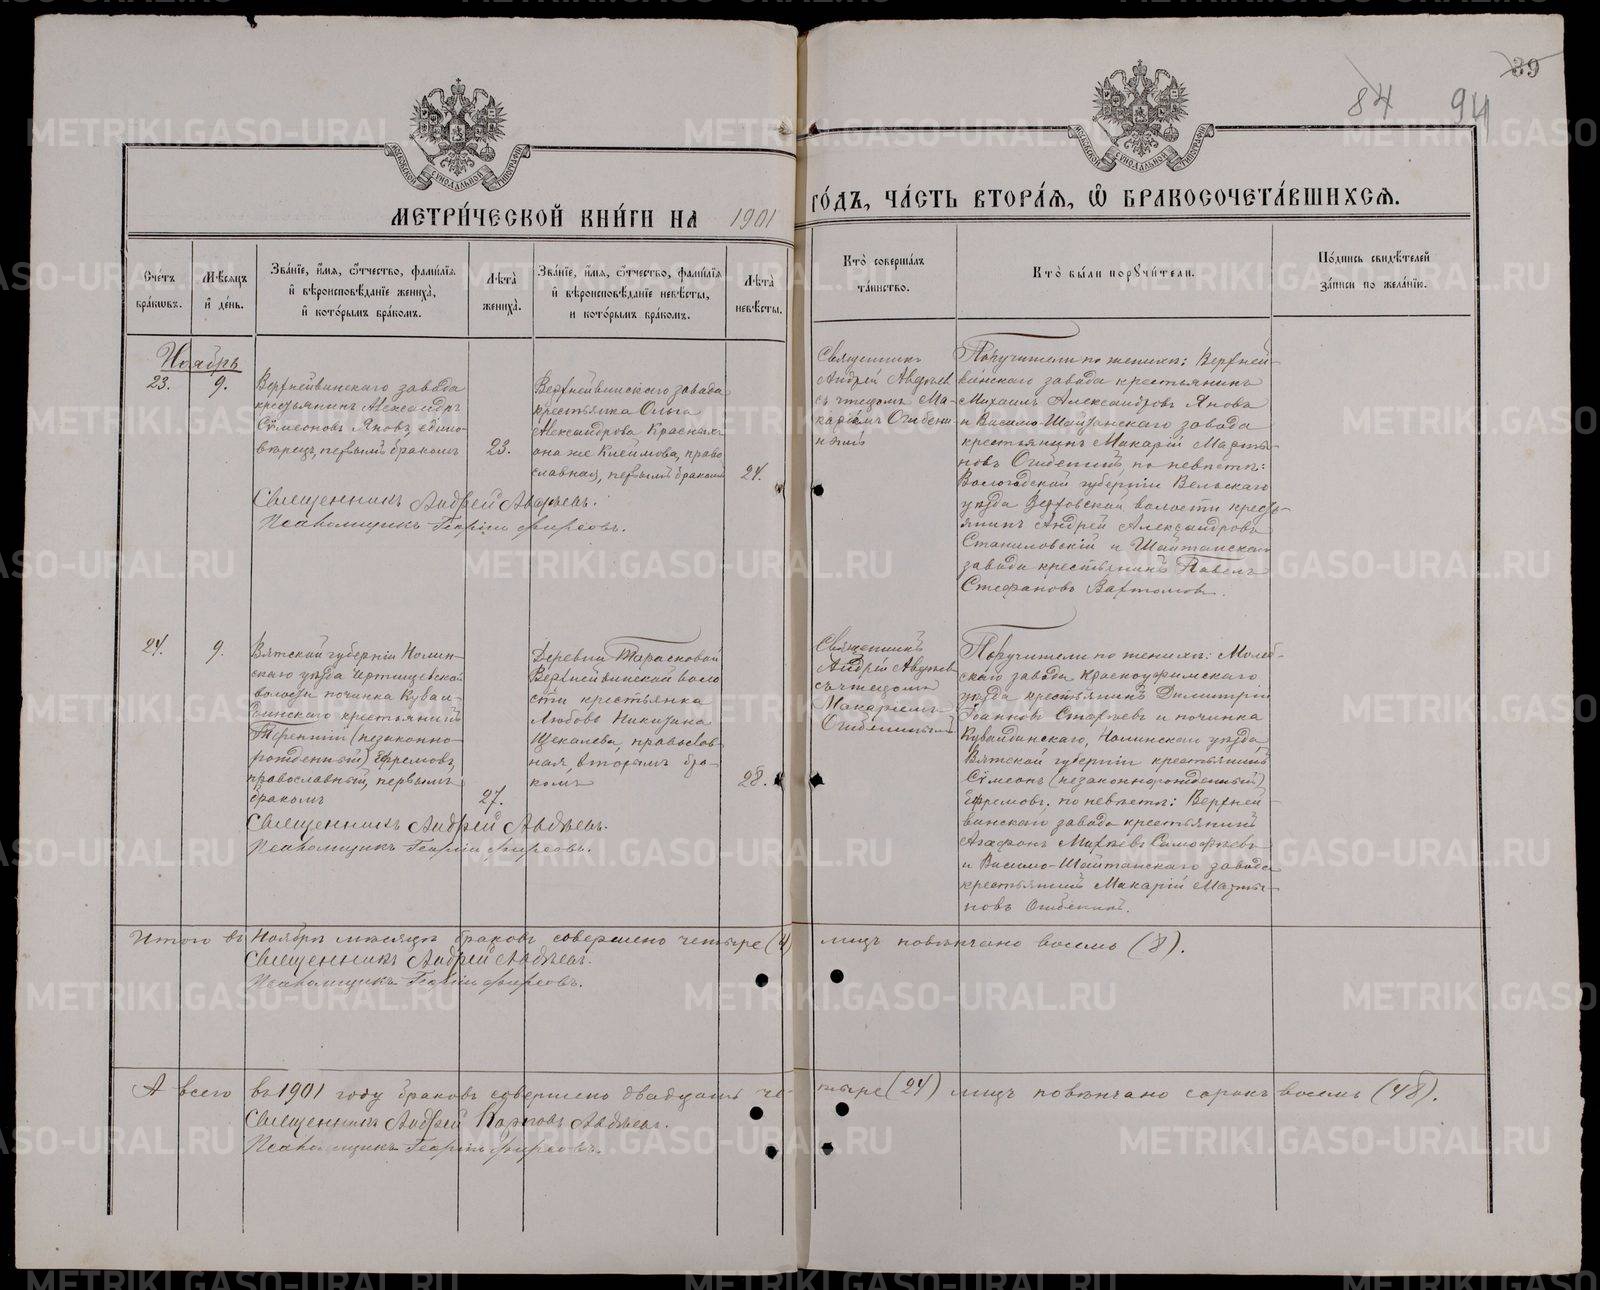 39
84 94
МОСКОВСКОЙ СѴНОДАЛЬНОЙ ТИПОГРАФІИ
МОСКОВСКОЙ СѴНОДАЛЬНОЙ ТИПОГРАФІИ
МЕТРИ́ЧЕСКОЙ КНИ́ГИ НА 1901 ГО́ДЪ, ЧА́СТЬ ВТОРА́Я, Ѡ БРАКОСОЧЕТА́ВШИХСЯ.
Сче́тъ бра́кѡвъ.
Мѣ́сяцъ и҆ де́нь.
Зва́нїе, и҆́мя, ѻ҆́тчество, фами́лїя
и҆ вѣроисповѣ́данїе жениха̀,
и҆ кото́рымъ бра́комъ.
Лѣ́та̀ жениха̀.
Зва́нїе, и҆́мя, ѻ҆́тчество, фами́лїя
и҆ вѣроисповѣ́данїе невѣ́сты,
и кото́рымъ бра́комъ.
Лѣ́та̀ невѣ́сты.
Кто̀ соверша́лъ
та́инство.
Кто̀ бы́ли порꙋчи́тели.
По́дпись свидѣ́телей
за́писи по жела́нїю.
Ноябрь
23. 9.
Верхнейвинскаго завода
крестьянинъ Александръ
Сѵмеоновъ Яновъ, едино-
верецъ, первымъ бракомъ
23.
Верхнейвинскаго завода
крестьянка Ольга
Александрова Красныхъ
она же Клеймова, право
славная, первымъ бракомъ
21.
Священникъ Андрей Авдѣевъ.
Псаломщикъ Георгій Фирсовъ.
Священникъ
Андрей Авдѣев
съ чтецомъ Ма-
каріемъ Огибени
нымъ
Поручители по женихѣ: Верхней-
винскаго завода крестьянинъ
Михаилъ Александровъ Яновъ
и Васильо-Шайтанскаго завода
крестьянинъ Макарій Марты-
новъ Огибенинъ, по невѣстѣ:
Вологодской губерніи Вельскаго
уѣзда Верховской волости кресть-
янинъ Андрей Александровъ
Станиловскій и Шайтанскаго
завода крестьянинъ Павелъ
Стефановъ Вахтомовъ.
24. 9.
Вятской губерніи Нолин-
скаго уѣзда
волости починка Кувал-
динскаго крестьянинъ
Терентій (незаконно-
рожденный) Ефремовъ,
православный, первымъ
бракомъ
27.
Деревни Тарасковой
Верхнейвинской воло
сти крестьянка
Любовь Никитина
Щекалева, православ
ная, вторымъ бра-
комъ
28.
Священникъ Андрей Авдѣевъ.
Псаломщикъ Георгій Фирсовъ.
Священникъ
Андрей Авдѣев
съ чтецомъ
Макаріемъ
Огибенинымъ
Поручители по женихѣ: Молеб-
скаго завода Красноуфимскаго
уѣзда крестьянинъ Димитрій
Іоанновъ Старцевъ и починка
Кувалдинскаго, Нолинскаго уѣзда,
Вятской губерніи крестьянинъ
Сѵмеонъ (незаконнорожденный)
Ефремовъ, по невѣстѣ: Верхней-
винскаго завода крестьянинъ
Агафонъ
и Васильо-Шайтанскаго завода
крестьянинъ Макарій Марты-
новъ Огибенинъ.
Итого въ Ноябрѣ мѣсяцѣ браковъ совершено четыре (4) лицъ повѣнчано восемь (8).
Священникъ Андрей Авдѣевъ.
Псаломщикъ Георгій Фирсовъ.
А всего въ 1901 году браковъ совершено двадцать четыре (24) лицъ повѣнчано сорокъ восемь (48).
Священникъ Андрей Карповъ Авдѣевъ.
Псаломщикъ Георгій Фирсовъ.
METRIKI.GASO-URAL.RU